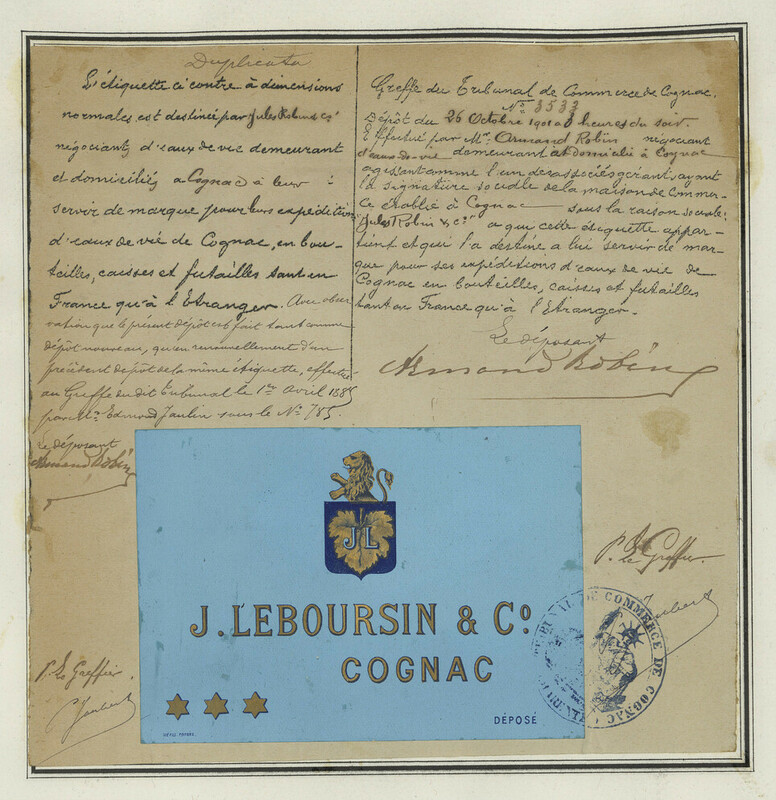 Duplicata
L'étiquette ci contre à dimensions
normales est destinée par Jules Robin & Cº
négociants d'eaux de vie demeurant
et domiciliés à Cognac à leur
servir de marque pour leurs expéditions
d'eaux de vie de Cognac, en bou-
teilles, caisses et futailles tant en
France qu'à l'Etranger. Avec obser
vation que le présent dépôt est fait tant comme
dépôt nouveau, qu'en renouvellement d'un
précédent dépôt de la même étiquette, effectué
au Greffe du dit tribunal le 1er Avril 1885
par Mr. Edmond Jaulin sous le Nº 785.
Le déposant
Armand Robin
Greffe du Tribunal de Commerce de Cognac.
Nº 3533
Dépôt du 26 Octobre 1901 à 3 heures du soir.
Effectué par Mr. Armand Robin négociant
d'eaux-de-vie demeurant et domicilié à Cognac
agissant comme l'un des associés gérants, ayant
la signature sociale de la maison de Commer-
ce établie à Cognac sous la raison sociale:
Jules Robin & Cº a qui cette étiquette appar-
tient et qui l'a destine a lui servir de mar-
que pour ses expéditions d'eaux de vie de
Cognac en bouteilles, caisses et futailles
tant en France qu'à l'Etranger.
Le déposant
Armand Robin
P. Le Greffier
Joubert
JL
J. LEBOURSIN & Cº
COGNAC
DÉPOSÉ
TRIBUNAL DE COMMERCE DE COGNAC
P. Le Greffier
Joubert